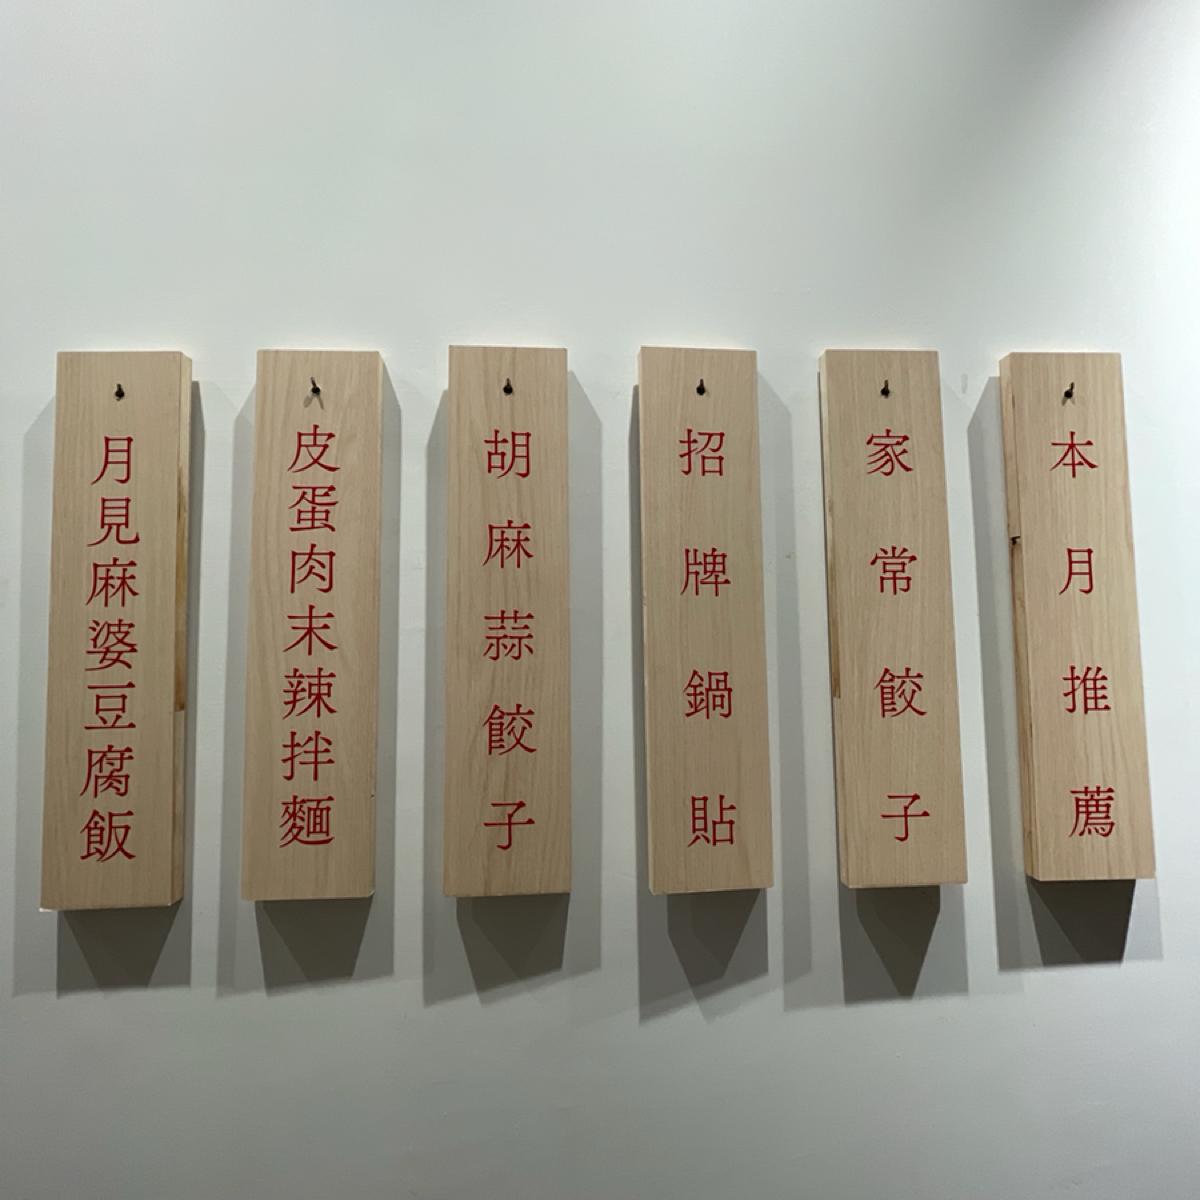 本月推薦
家常餃子
招牌鍋貼
胡麻蒜餃子
皮蛋肉末辣拌麵
月見麻婆豆腐飯